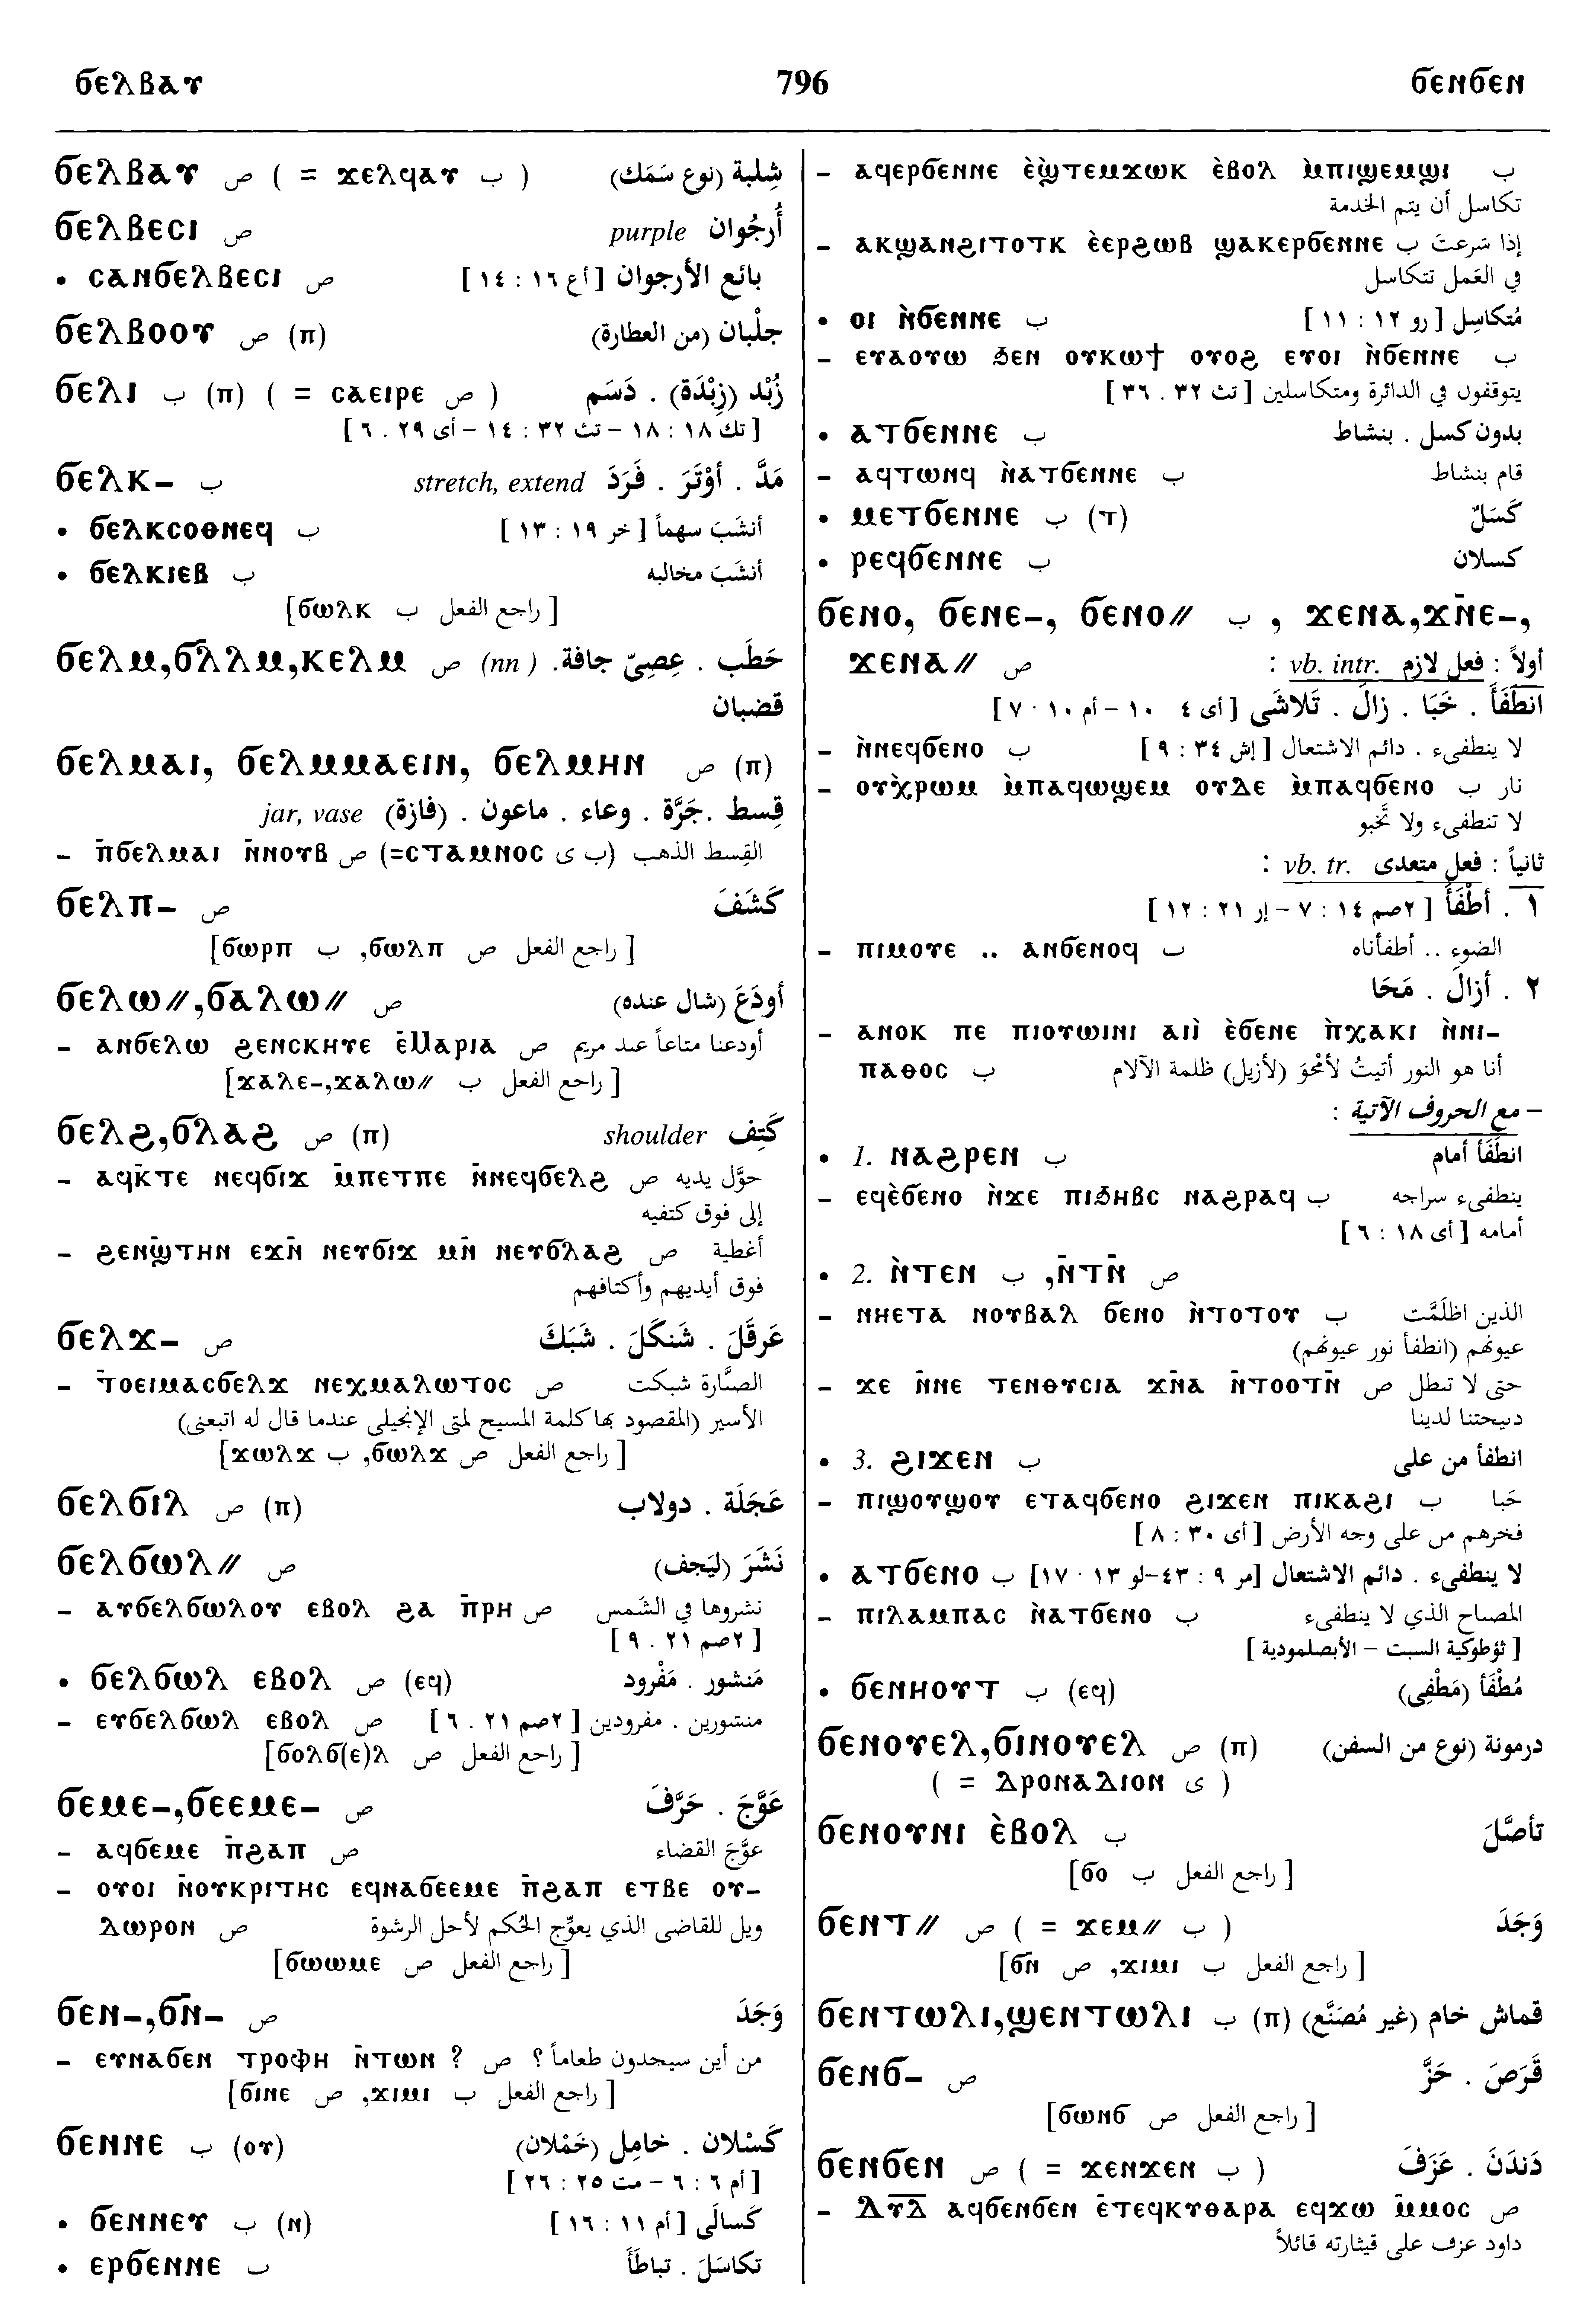 ϭⲉⲗⲃⲁⲩ 796 ϭⲉⲛϭⲉⲛ
ϭⲉⲗⲃⲁⲩ ص ( = ϫⲉⲗϥⲁⲩ ب ) شِلبة (نوع سَمَك)
ϭⲉⲗⲃⲉⲥⲓ ص purple أُرجُوان
• ⲥⲁⲛϭⲉⲗⲃⲉⲥⲓ ص بائع الأرجوان [أع ١٦ : ١٤ ]
ϭⲉⲗⲃⲟⲟⲩ ص (ⲡ) جلْبان (من العطارة)
ϭⲉⲗⲓ ب (ⲡ) ( = ⲥⲁⲉⲓⲣⲉ ص ) زُبْد (زِبْدَة) . دَسَم
[ تك ١٨ : ١٨ – تث ٣٢ : ١٤ – أى ٢٩ . ٦ ]
ϭⲉⲗⲕ– ب stretch, extend مَدَّ . أوْتَرَ . فَرَدَ
• ϭⲉⲗⲕⲥⲟⲑⲛⲉϥ ب أنشَبَ سهماً [ خر ١٩ : ١٣ ]
• ϭⲉⲗⲕⲓⲉⲃ ب أنشَبَ مخالبه
[ راجع الفعل ب ϭⲱⲗⲕ]
ϭⲉⲗⲙ,ϭⲗ̄ⲗⲙ,ⲕⲉⲗⲙ ص (nn ) حَطَب . عِصِىّ جافة.
قضبان
ϭⲉⲗⲙⲁⲓ, ϭⲉⲗⲙⲙⲁⲉⲓⲛ, ϭⲉⲗⲙⲏⲛ ص (ⲡ)
jar, vase قِسط .جَرَّة . وعاء . ماعون . (ڤازة)
– ⲡ̄ϭⲉⲗⲙⲁⲓ ⲛ̄ⲛⲟⲩⲃ ص (=ⲥⲧⲁⲙⲛⲟⲥ ب ى) القِسط الذهب
ϭⲉⲗⲡ– ص كَشَفَ
[ راجع الفعل ص ϭⲱⲗⲡ, ب ϭⲱⲣⲡ]
ϭⲉⲗⲱ//,ϭⲁⲗⲱ// ص أودَعَ (شال عنده)
– ⲁⲛϭⲉⲗⲱ ϩⲉⲛⲥⲕⲏⲩⲉ ⲉ̄Ⲙⲁⲣⲓⲁ ص أودعنا متاعاً عند مريم
[ راجع الفعل ب ϫⲁⲗⲉ–,ϫⲁⲗⲱ//]
ϭⲉⲗϩ,ϭⲗⲁϩ ص (ⲡ) shoulder كَتِف
– ⲁϥⲕ̄ⲧⲉ ⲛⲉϥϭⲓϫ ⲙ̄ⲡⲉⲧⲡⲉ ⲛ̄ⲛⲉϥϭⲉⲗϩ ص حوَّل يديه
إلى فوق كتفيه
– ϩⲉⲛϣ̄ⲧⲏⲛ ⲉϫⲛ̄ ⲛⲉⲩϭⲓϫ ⲙⲛ̄ ⲛⲉⲩϭⲗⲁϩ ص أغطية
فوق أيديهم وأكتافهم
ϭⲉⲗϫ– ص عَرقَلَ . شَنكَلَ . شَبَكَ
– ⲧ̄ⲟⲉⲓⲙⲁⲥϭⲉⲗϫ ⲛⲉⲭⲙⲁⲗⲱⲧⲟⲥ ص الصنَّارة شبكت
الأسير (المقصود بها كلمة المسيح لمتى الإنجيلى عندما قال له اتبعنى)
[ راجع الفعل ص ϭⲱⲗϫ, ب ϫⲱⲗϫ]
ϭⲉⲗϭⲓⲗ ص (ⲡ) عَجَلَة . دولاب
ϭⲉⲗϭⲱⲗ// ص نَشَرَ (ليَجف)
– ⲁⲩϭⲉⲗϭⲱⲗⲟⲩ ⲉⲃⲟⲗ ϩⲁ ⲡ̄ⲣⲏ ص نشروها في الشَمس
[ ٢صم ٢١ . ٩ ]
• ϭⲉⲗϭⲱⲗ ⲉⲃⲟⲗ ص (ⲉϥ) مَنشور . مَفْرود
– ⲉⲩϭⲉⲗϭⲱⲗ ⲉⲃⲟⲗ ص منشورين . مفرودين [ ٢صم ٢١ . ٦ ]
[ راجع الفعل ص ϭⲟⲗϭ(ⲉ)ⲗ]
ϭⲉⲙⲉ–,ϭⲉⲉⲙⲉ– ص عَوَّجَ . حَرَّفَ
– ⲁϥϭⲉⲙⲉ ⲡ̄ϩⲁⲡ ص عوَّجَ القضاء
– ⲟⲩⲟⲓ ⲛ̄ⲟⲩⲕⲣⲓⲧⲏⲥ ⲉϥⲛⲁϭⲉⲉⲙⲉ ⲡ̄ϩⲁⲡ ⲉⲧⲃⲉ ⲟⲩ–
ⲇⲱⲣⲟⲛ ص ويل للقاضى الذي يعوِّج الحُكم لأجل الرشوة
[ راجع الفعل ص ϭⲱⲱⲙⲉ]
ϭⲉⲛ–,ϭⲛ̄– ص وَجَدَ
– ⲉⲩⲛⲁϭⲉⲛ ⲧⲣⲟⲫⲏ ⲛ̄ⲧⲱⲛ ? ص من أين سيجدون طعاماً ؟
[ راجع الفعل ب ϫⲓⲙⲓ, ص ϭⲓⲛⲉ]
ϭⲉⲛⲛⲉ ب (ⲟⲩ) كَسْلان . خامِل (خَمْلان)
[أم ٦ : ٦ – مت ٢٥ : ٢٦ ]
• ϭⲉⲛⲛⲉⲩ ب (ⲛ) كَسالَى [ أم ١١ : ١٦ ]
• ⲉⲣϭⲉⲛⲛⲉ ب تكاسَلَ . تباطَأَ
– ⲁϥⲉⲣϭⲉⲛⲛⲉ ⲉ̀ϣ̀ⲧⲉⲙϫⲱⲕ ⲉ̀ⲃⲟⲗ ⲙ̀ⲡⲓϣⲉⲙϣⲓ ب
تكاسل أن يتم الخدمة
– ⲁⲕϣⲁⲛϩⲓⲧⲟⲧⲕ ⲉ̀ⲉⲣϩⲱⲃ ϣⲁⲕⲉⲣϭⲉⲛⲛⲉ ب إذا شرعتَ
في العَمل تتكاسل
• ⲟⲓ ⲛ̀ϭⲉⲛⲛⲉ ب مُتكاسِل [ رو ١٢ : ١١ ]
– ⲉⲩⲁⲟⲩⲱ ϧⲉⲛ ⲟⲩⲕⲱϯ ⲟⲩⲟϩ ⲉⲩⲟⲓ ⲛ̀ϭⲉⲛⲛⲉ ب
يتوقفون في الدائرة ومتكاسلين [ تث ٣٢ . ٣٦ ]
• ⲁⲧϭⲉⲛⲛⲉ ب بدون كسل . بنشاط
– ⲁϥⲧⲱⲛϥ ⲛ̀ⲁⲧϭⲉⲛⲛⲉ ب قام بنشاط
• ⲙⲉⲧϭⲉⲛⲛⲉ ب (ⲧ) كَسَلٌ
• ⲣⲉϥϭⲉⲛⲛⲉ ب كسلان
ϭⲉⲛⲟ, ϭⲉⲛⲉ–, ϭⲉⲛⲟ// ب , ϫⲉⲛⲁ,ϫⲛ̄ⲉ–,
ϫⲉⲛⲁ// ص أولاً : فعل لازم vb. intr. :
انطَفَأَ . خَبَا . زالَ . تَلاشَى [ أى ٤ ١٠ – أم ١٠ ٧ ]
– ⲛ̀ⲛⲉϥϭⲉⲛⲟ ب لا ينطفىء . دائم الاشتعال [ إش ٣٤ : ٩ ]
– ⲟⲩⲭ̀ⲣⲱⲙ ⲙ̀ⲡⲁϥⲱϣⲉⲙ ⲟⲩⲇⲉ ⲙ̀ⲡⲁϥϭⲉⲛⲟ ب نار
لا تنطفىء ولا تَخبو
ثانياً : فعل متعدى vb. tr. :
١ . أطْفَأَ [ ٢صم ١٤ : ٧ – إر ٢١ : ١٢ ]
– ⲡⲓⲙⲟⲩⲉ .. ⲁⲛϭⲉⲛⲟϥ ب الضوء .. أطفأناه
٢ . أزالَ . مَحَا
– ⲁⲛⲟⲕ ⲡⲉ ⲡⲓⲟⲩⲱⲓⲛⲓ ⲁⲓⲓ̀ ⲉ̀ϭⲉⲛⲉ ⲡ̀ⲭⲁⲕⲓ ⲛ̀ⲛⲓ–
ⲡⲁⲑⲟⲥ ب أنا هو النور أتيتُ لأمْحُوَ (لأزيل) ظلمة الآلام
– مع الحروف الآتية :
• 1. ⲛⲁϩⲣⲉⲛ ب انطَفَأ أمام
– ⲉϥⲉ̀ϭⲉⲛⲟ ⲛ̀ϫⲉ ⲡⲓϧⲏⲃⲥ ⲛⲁϩⲣⲁϥ ب ينطفىء سراجه
أمامه [ أى ١٨ : ٦ ]
• 2. ⲛ̀ⲧⲉⲛ ب ,ⲛ̄ⲧⲛ̄ ص
– ⲛⲏⲉⲧⲁ ⲛⲟⲩⲃⲁⲗ ϭⲉⲛⲟ ⲛ̀ⲧⲟⲧⲟⲩ ب الذين اظلَمَّت
عيونهم (انطفأ نور عيونهم)
– ϫⲉ ⲛ̄ⲛⲉ ⲧⲉⲛⲑⲩⲥⲓⲁ ϫⲛ̄ⲁ ⲛ̄ⲧⲟⲟⲧⲛ̄ ص حتى لا تبطل
ذبيحتنا لدينا
• 3. ϩⲓϫⲉⲛ ب انطفأ من على
– ⲡⲓϣⲟⲩϣⲟⲩ ⲉⲧⲁϥϭⲉⲛⲟ ϩⲓϫⲉⲛ ⲡⲓⲕⲁϩⲓ ب خَبا
فخرهم من على وجه الأرض [ أى ٣٠ : ٨ ]
• ⲁⲧϭⲉⲛⲟ ب لا ينطفىء . دائم الاشتعال [مر ٩ : ٤٣–لو ١٣ ١٧]
– ⲡⲓⲗⲁⲙⲡⲁⲥ ⲛ̀ⲁⲧϭⲉⲛⲟ ب المصباح الذي لا ينطفىء
[ ثؤطوكية السبت – الأبصلمودية ]
• ϭⲉⲛⲏⲟⲩⲧ ب (ⲉϥ) مُطْفَأ (مَطْفِى)
ϭⲉⲛⲟⲩⲉⲗ,ϭⲓⲛⲟⲩⲉⲗ ص (ⲡ) درمونة (نوع من السفن)
( = ⲇⲣⲟⲛⲁⲇⲓⲟⲛ ى )
ϭⲉⲛⲟⲩⲛⲓ ⲉ̀ⲃⲟⲗ ب تأصَّلَ
[ راجع الفعل ب ϭⲟ]
ϭⲉⲛⲧ// ص ( = ϫⲉⲙ// ب ) وَجَدَ
[ راجع الفعل ب ϫⲓⲙⲓ, ص ϭⲛ̄]
ϭⲉⲛⲧⲱⲗⲓ,ϣⲉⲛⲧⲱⲗⲓ ب (ⲡ) قماش خام (غير مُصَنَّع)
ϭⲉⲛϭ– ص قَرَصَ . حَزَّ
[ راجع الفعل ص ϭⲱⲛϭ]
ϭⲉⲛϭⲉⲛ ص ( = ϫⲉⲛϫⲉⲛ ب ) دَندَنَ . عَزَفَ
– ⲇ̅ⲩ̅ⲇ̅ ⲁϥϭⲉⲛϭⲉⲛ ⲉ̄ⲧⲉϥⲕⲩⲑⲁⲣⲁ ⲉϥϫⲱ ⲙ̄ⲙⲟⲥ ص
داود عزف على قيثارته قائلاً